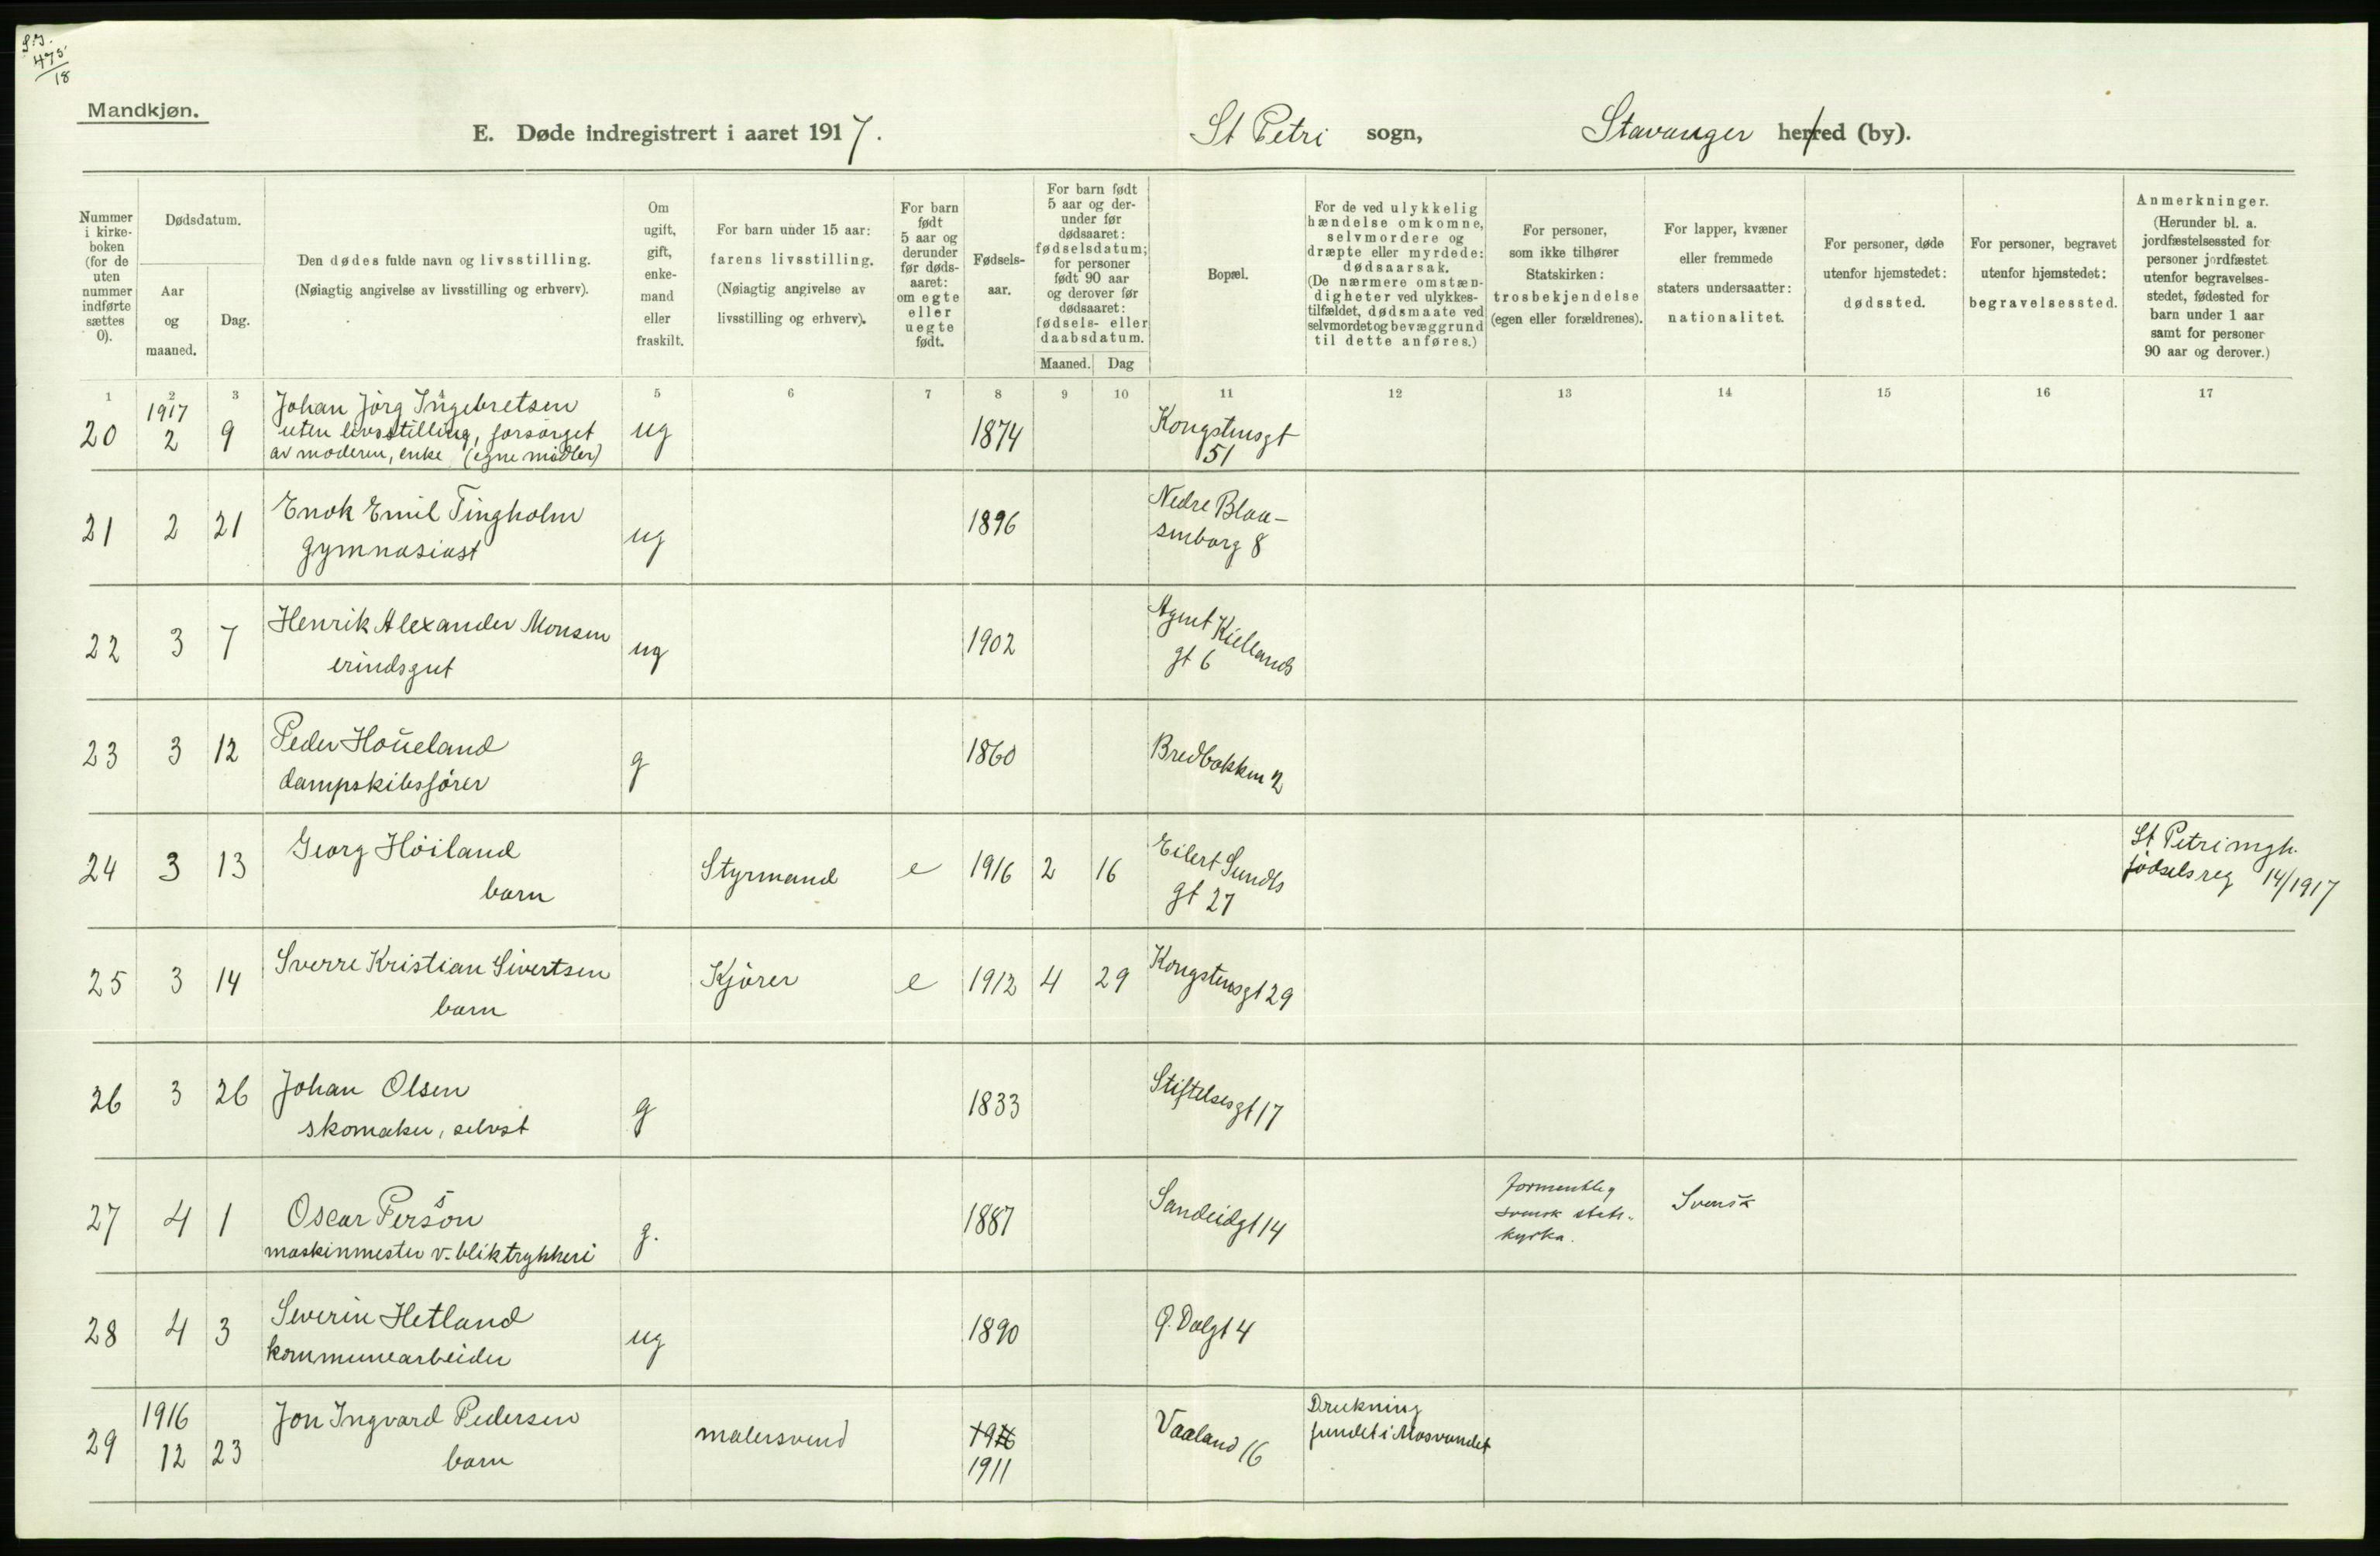 S.J.
473
18
Mandkjøn.
E. Døde indregistrert i aaret 1917. St Petri sogn, Stavanger herred (by).
Nummer i kirke-boken (for de uten nummer indførte sættes 0).
Dødsdatum.
Aar og maaned.
Dag.
Den dødes fulde navn og livsstilling.
(Nøiagtig angivelse av livsstilling og erhverv).
Om ugift, gift, enke-mand eller fraskilt.
For barn under 15 aar: farens livsstilling. (Nøiagtig angivelse av livsstilling og erhverv).
For barn født 5 aar og derunder før døds-aaret: om egte eller uegte født.
Fødsels-aar.
For barn født 5 aar og der-under før dødsaaret: fødselsdatum; for personer født 90 aar og derover før dødsaaret: fødsels- eller daabsdatum.
Maaned. Dag
Bopæl.
For de ved ulykkelig hændelse omkomne, selvmordere og dræpte eller myrdede: dødsaarsak. (De nærmere omstæn-digheter ved ulykkes-tilfældet, dødsmaate ved selvmordet og bevæggrund til dette anføres.)
For personer, som ikke tilhører Statskirken: trosbekjendelse (egen eller forældrenes).
For lapper, kvæner eller fremmede staters undersaatter: nationalitet.
For personer, døde utenfor hjemstedet: dødssted.
For personer, begravet utenfor hjemstedet: begravelsessted.
Anmerkninger. (Herunder bl. a. jordfæstelsessted for personer jordfæstet utenfor begravelses-stedet, fødested for barn under 1 aar samt for personer 90 aar og derover.)
1 2 3 5 6 7 8 9 10 11 12 13 14 15 16 17
20 1917 2 9 Johan Jörg Ingebretsen
uten livsstilling, forsörget
av moderen, enke (egne midler) ug 1874 Kongstensgt
51
21 2 21 Enok Emil Tingholm
gymnasiast ug 1896 Nedre Blaa-
senborg 8
22 3 7 Henrik Alexander Monsen
erindsgut ug 1902 Agent Kiellands
gt 6
23 3 12 Peder Houeland
dampskibsförer g 1860 Bredbakken 2
24 3 13 Georg Höiland
barn Styrmand e 1916 2 16 Eilert Sundts
gt 27 St Petri mgh.
födselsreg 14/1917
25 3 14 Sverre Kristian Sivertsen
barn Kjörer e 1912 4 29 Kongstensgt 29
26 3 26 Johan Olsen
skomaker, selvst g 1833 Stiftelsesgt 17
27 4 1 Oscar Persson
maskinmester v. bliktrykkeri g. 1887 Sandeidgt 14 formentleg
svensk stats-
kyrka. Svensk
28 4 3 Severin Hetland
kommunearbeider ug 1890 Ø. Dalgt 4
29 1916 12 23 Jon Ingvard Pedersen
barn malersvend 1916
1911 Vaaland 16 Drukning
fundet i Mosvandet